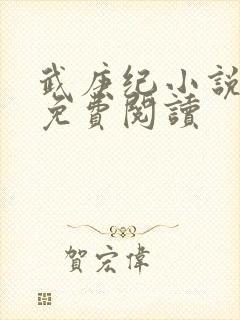 武庚纪小說
免費閱讀
賀宏偉